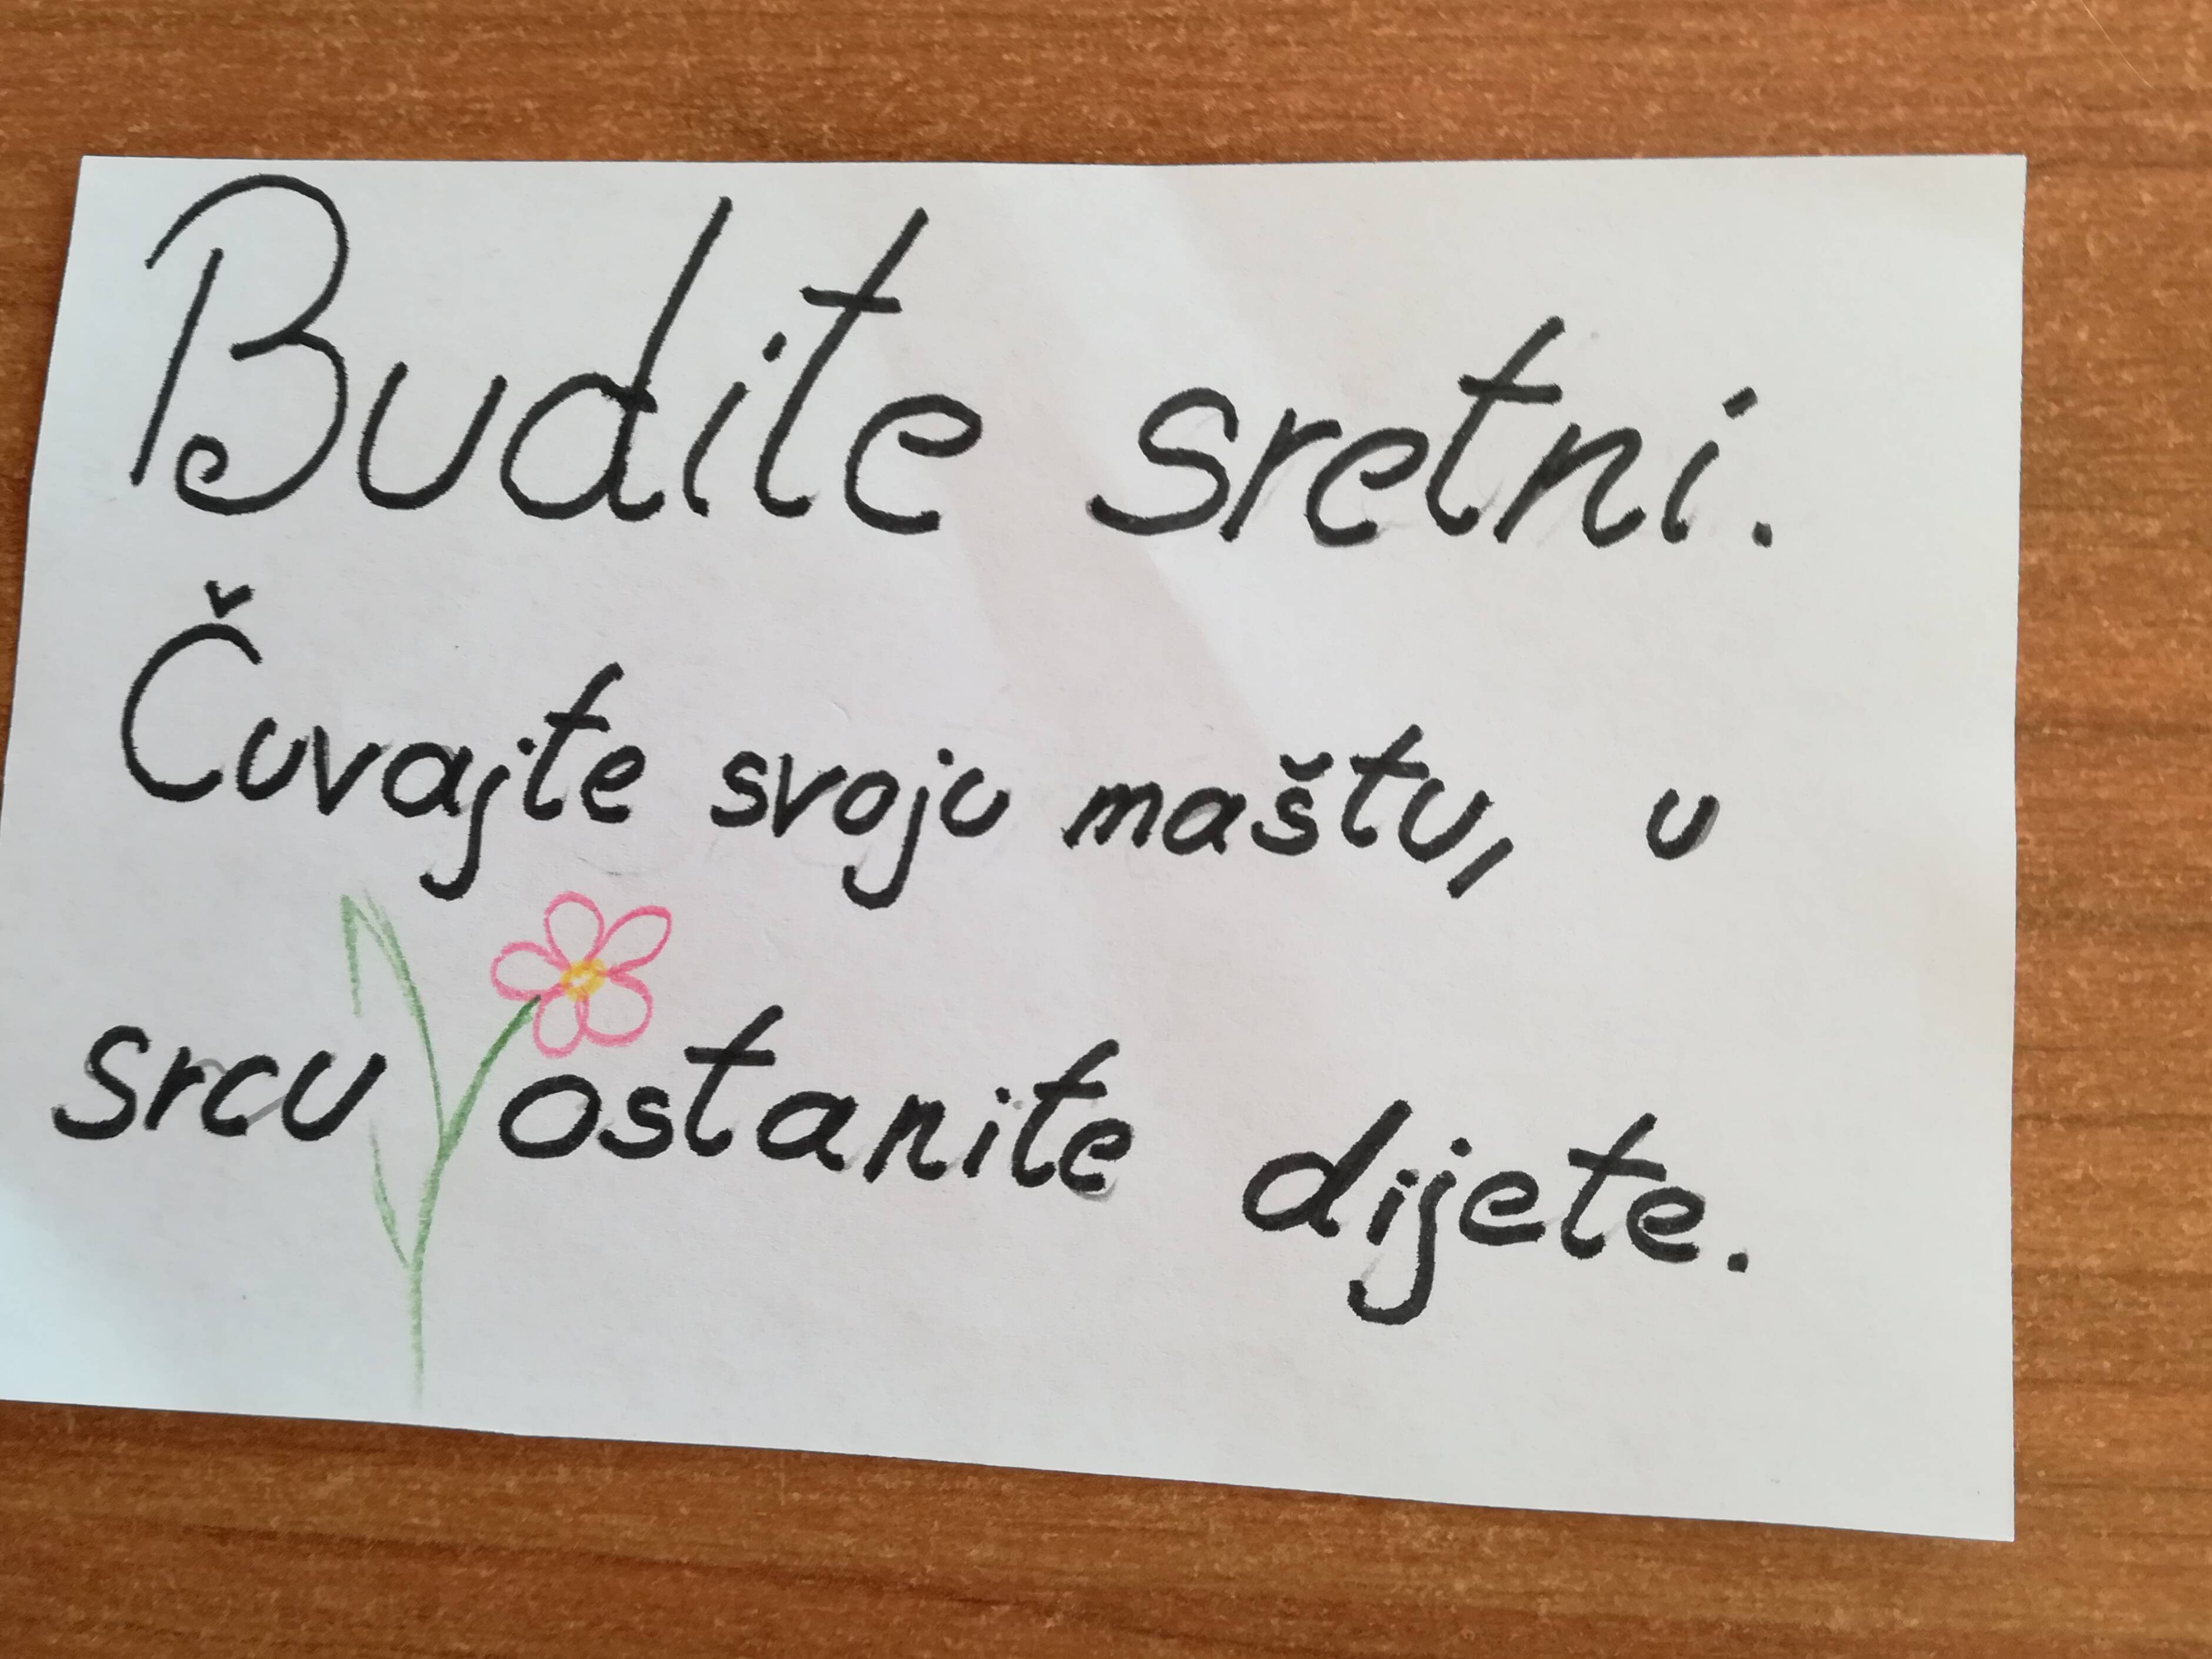 Budite sretni.
Čuvajte svoju maštu, u
srcu ostanite dijete.